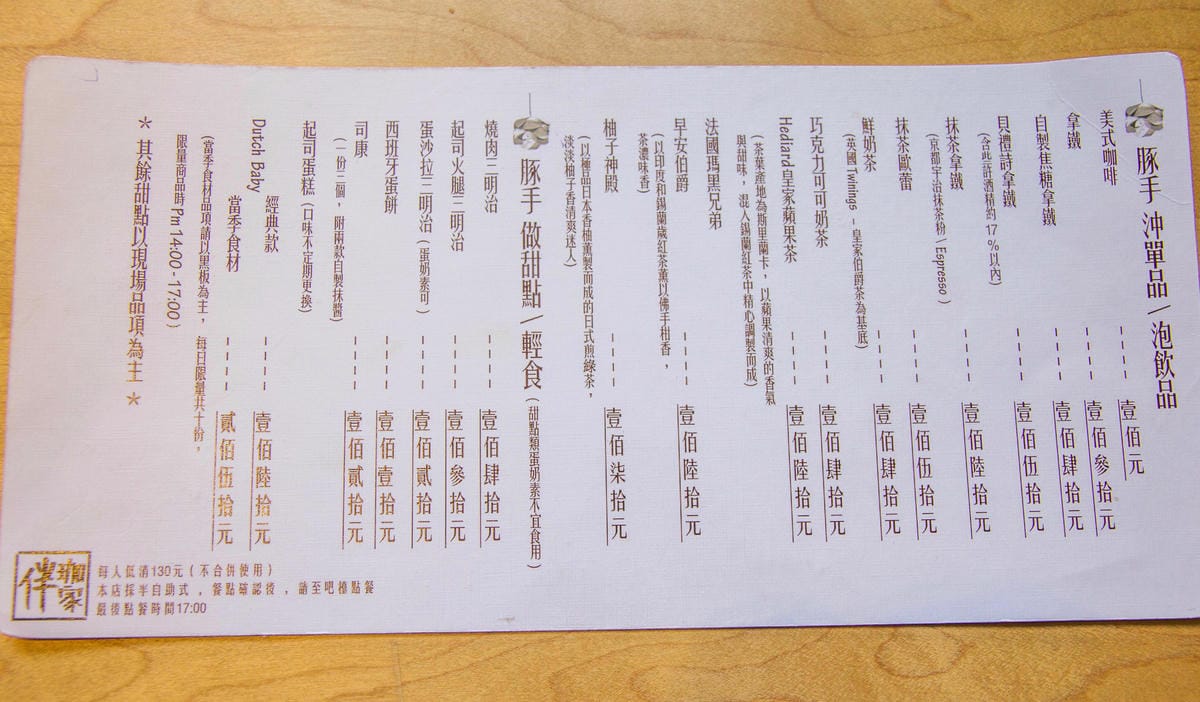 豚手 沖單品 / 泡飲品
美式咖啡 ---- 壹佰元
拿鐵 ---- 壹佰參拾元
自製焦糖拿鐵 ---- 壹佰肆拾元
貝禮詩拿鐵 ---- 壹佰伍拾元
(含此許酒精約17%以內)
抹茶拿鐵 ---- 壹佰陸拾元
(京都宇治抹茶粉 / Espresso)
抹茶歐蕾 ---- 壹佰伍拾元
鮮奶茶 ---- 壹佰肆拾元
(英國 Twinings - 皇家伯爵茶為基底)
巧克力可可奶茶 ---- 壹佰肆拾元
Hediard皇家蘋果茶 ---- 壹佰陸拾元
(茶葉產地為斯里蘭卡，以蘋果清爽的香氣
與甜味，混入錫蘭紅茶中精心調製而成)
法國瑪黑兄弟
早安伯爵 ---- 壹佰陸拾元
(以印度和錫蘭歲紅茶薰以佛手柑香，
茶濃味香)
柚子神殿 ---- 壹佰柒拾元
(以極品日本香柚薰製而成的日式煎綠茶，
淡淡柚子香清爽迷人)
豚手 做甜點 / 輕食 (甜點類蛋奶素不宜食用)
燒肉三明治 ---- 壹佰肆拾元
起司火腿三明治 ---- 壹佰參拾元
蛋沙拉三明治 (蛋奶素可) ---- 壹佰貳拾元
西班牙蛋餅 ---- 壹佰壹拾元
司康 ---- 壹佰貳拾元
(一份三個，附兩款自製抹醬)
起司蛋糕 (口味不定期更換)
Dutch Baby 經典公款 ---- 壹佰陸拾元
當季食材 ---- 貳佰伍拾元
(當季食材品項請以黑板為主，每日限量共十份，
限量商品時 Pm 14:00-17:00)
* 其餘甜點以現場品項為主 *
伴珈家
每人低消130元 ( 不合併使用 )
本店採半自助式，餐點確認後，請至吧檯點餐
最後點餐時間17:00